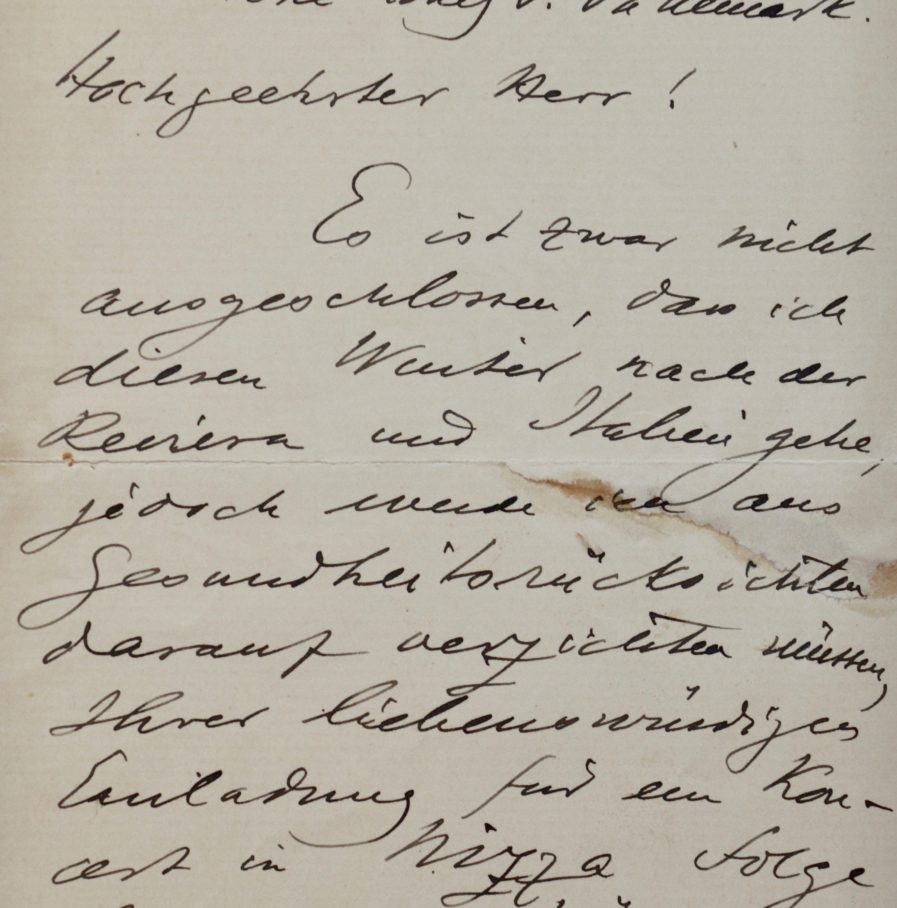 Dänemark.
Hochgeehrter Herr!
Es ist zwar nicht
ausgeschlossen, dass ich
diesen Winter nach der
Reviera und Italien gehe,
jedoch werde ich aus
Gesundheitsrücksichten
darauf verzichten müssen,
Ihrer liebenswürdigen
Einladung für ein Kon-
cert in Nizza Folge